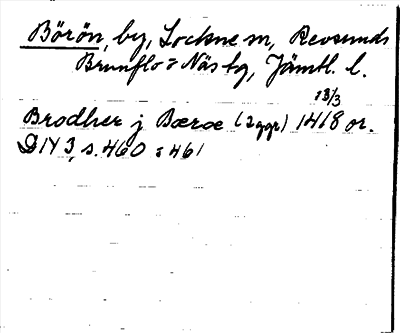 Börön, by, Lockne sn, Revsunds
Brunflo o Näs tg, Jämtl. l.
13/3
Brodher j Bæroæ (2 ggr) 1418 or.
DN 3, s. 460 o 461